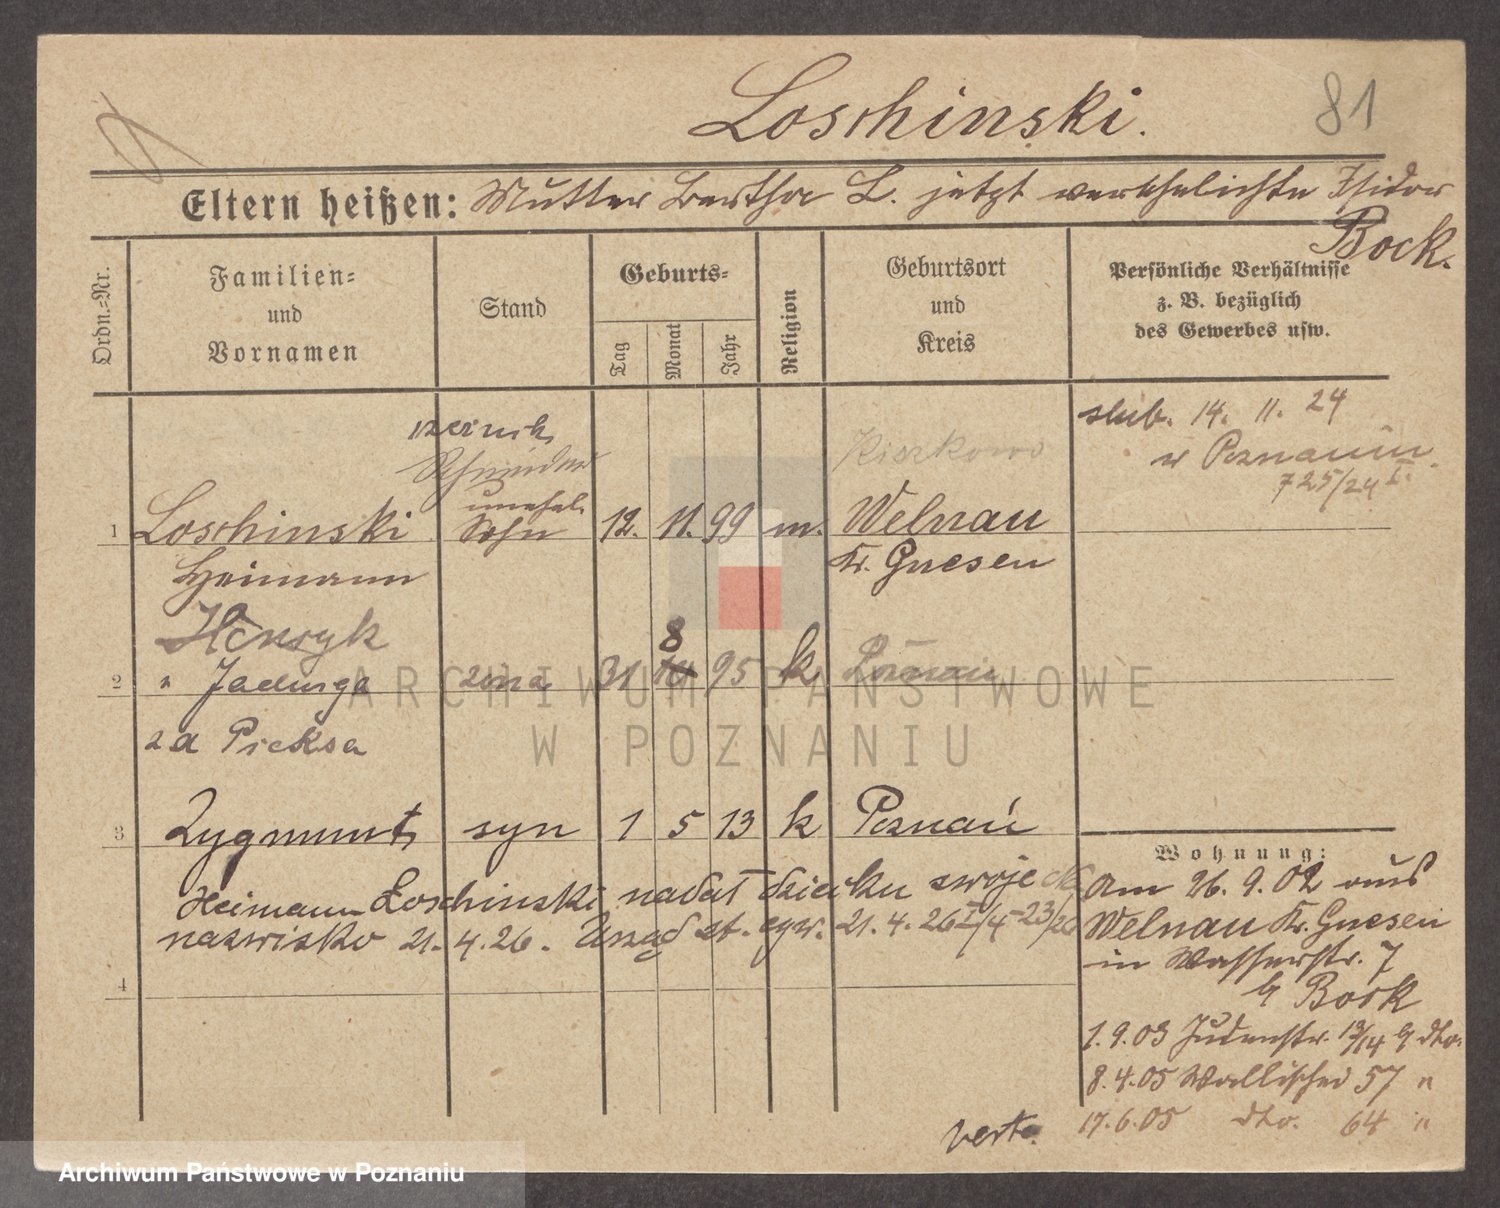 Loschinski.
81
Eltern heißen: Mutter Bertha L. jetzt verehelichte Isidor
Bock.
Ordn.-Nr.
Familien-
und
Vornamen
Stand
Geburts-
Tag
Monat
Jahr
Religion
Geburtsort
und
Kreis
Persönliche Verhältnisse
z. B. bezüglich
des Gewerbes usw.
ślub. 14. 11. 24
w Poznaniu
725/24 I.
Schneider
Kiszkowo
unehel.
1 Loschinski Sohn 12. 11. 99 m. Welnau
Heimann Kr. Gnesen
Henryk
8
2 " Jadwiga żona 31 10 95 k Poznań
z d Pieksa
3 Zygmunt syn 1 5 13 k Poznań
Heimann Loschinski nadał dziecku swoje
nazwisko 21. 4. 26. Urząd st. cyw. 21. 4. 26
4
Wohnung:
Am 26. 9. 02 aus
Welnau Kr. Gnesen
in Wasserstr. 7
b Bock
1. 9. 03 Judenstr. 13/14 b dto.
8. 4. 05 Wallischei 57 "
17. 6. 05 dto. 64 "
verte.
ARCHIWUM PAŃSTWOWE
W POZNANIU
Archiwum Państwowe w Poznaniu